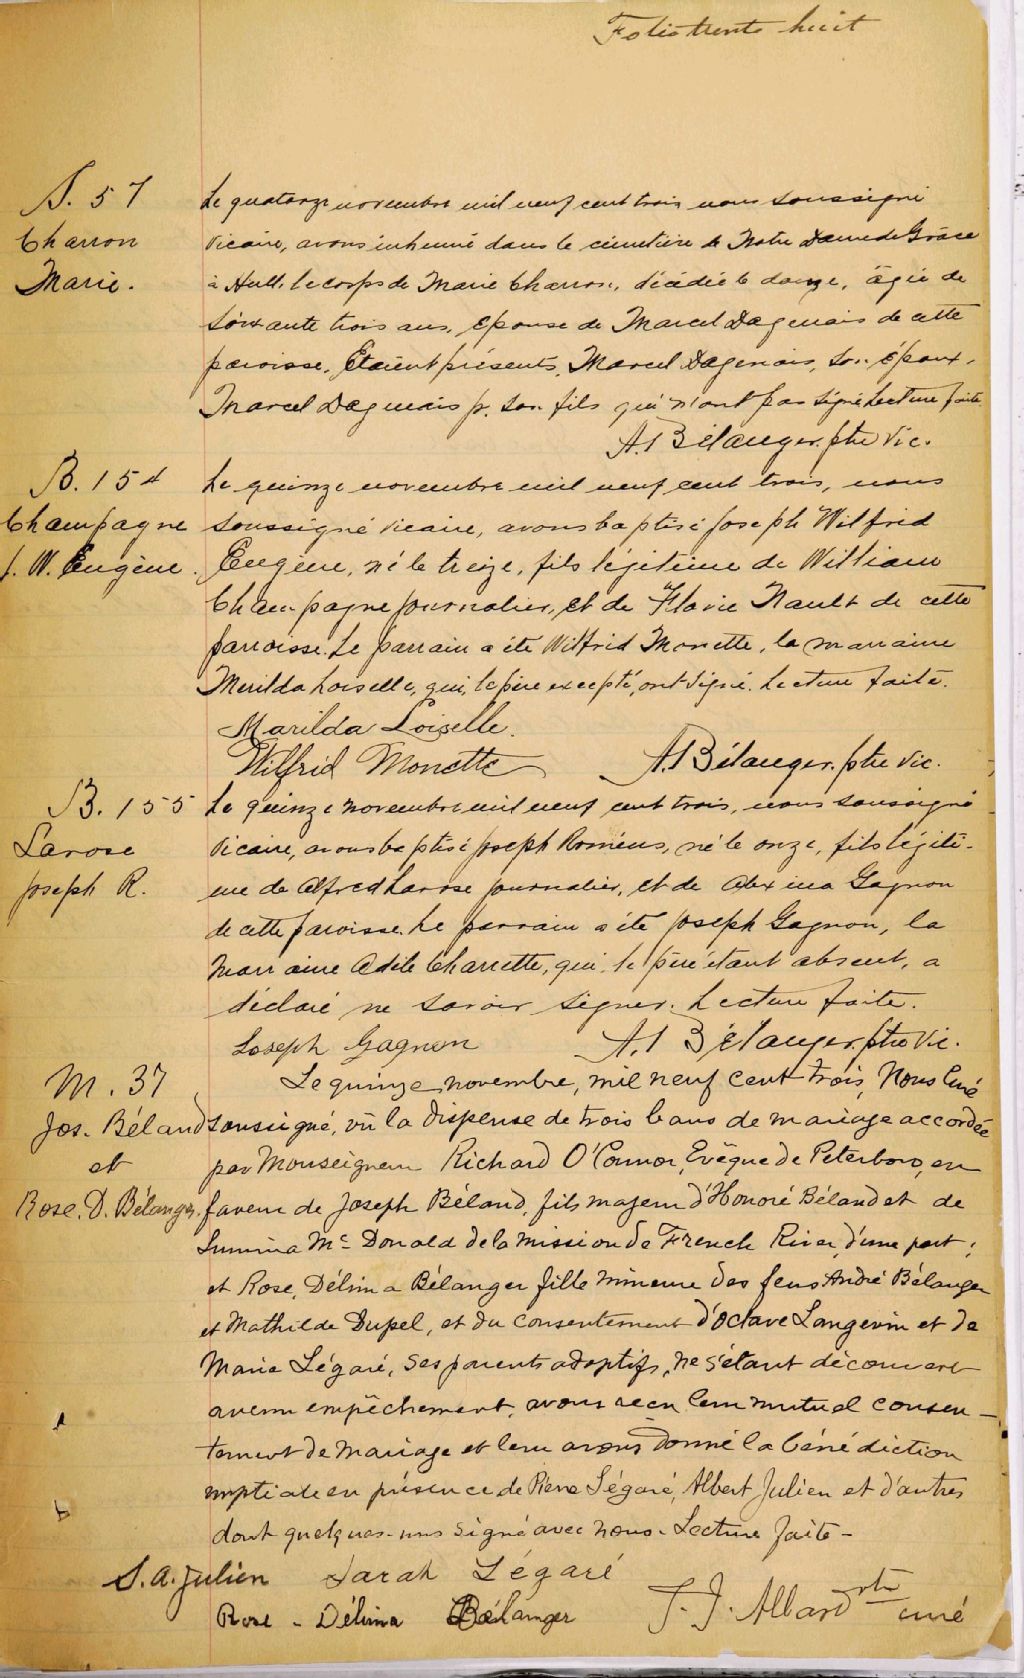 Folio trente huit
S. 57
Charron
Marie.
Le quatorze novembre mil neuf cent trois nous soussigné
vicaire, avons inhumé dans le cimetière de Notre Dame de Grâce
à Hull, le corps de Marie Charron, décédée le douze, âgée de
soixante trois ans, épouse de Marcel Dagenais de cette
paroisse. Étaient présents, Marcel Dagenais, son époux,
Marcel Dagenais jr. son fils qui n'ont pas signé. Lecture faite
A. Bélanger. ptre vic.
B. 154
Champagne
J. W. Eugène.
Le quinze novembre mil neuf cent trois, nous
soussigné vicaire, avons baptisé Joseph Wilfrid
Eugène, né le treize, fils légitime de William
Champagne journalier, et de Flavie Nault de cette
paroisse. Le parrain a été Wilfrid Monette, la marraine
Merilda Loiselle, qui, le père excepté, ont signé. Lecture faite.
Marilda Loiselle.
Wilfrid Monette
A. Bélanger. ptre vic.
B. 155
Larose
Joseph R.
Le quinze novembre mil neuf cent trois, nous soussigné
vicaire, avons baptisé Joseph Roméus, né le onze, fils légiti-
me de Alfred Larose journalier, et de Alexina Gagnon
de cette paroisse. Le parrain a été Joseph Gagnon, la
marraine Adèle Charette, qui, le père étant absent, a
déclaré ne savoir signer. Lecture faite.
Joseph Gagnon
A. Bélanger, ptre vic.
M. 37
Jos. Béland
et
Rose. D. Bélanger
Le quinze novembre, mil neuf cent trois, Nous Curé
soussigné, vû la dispense de trois bans de mariage accordée
par Monseigneur Richard O'Connor, Evêque de Peterboro, en
faveur de Joseph Béland, fils majeur d'Honoré Béland et de
Mc Donald de la mission de French River, d'une part;
et Rose, Délima Bélanger fille mineure des feus André Bélanger
et Mathilde Dupel, et du consentement d'Octave Langevin et de
Marie Légaré, ses parents adoptifs, ne s'étant découvert
aucun empêchement, avons reçu leur mutuel consen-
tement de mariage et leur avons donné la bénédiction
nuptiale en présence de Pierre Légaré, Albert Julien et d'autres
dont quelques-uns signé avec nous. Lecture faite -
S. A. Julien
Sarah Légaré
Rose - Délima Bélanger
ptre
curé